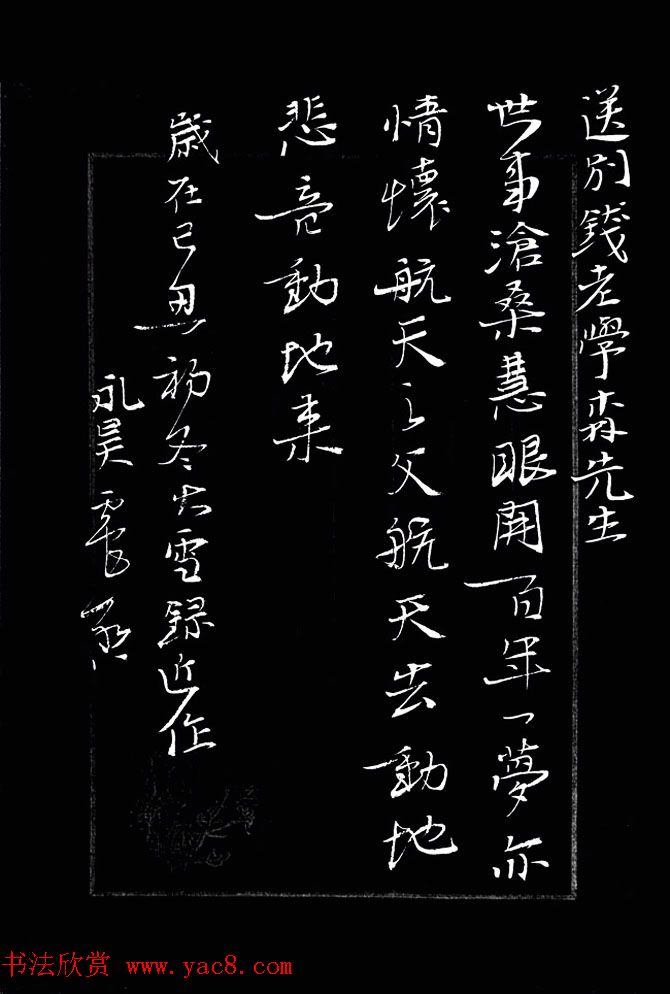 送別錢老學森先生
世事滄桑慧眼開百年一夢亦
情懷航天之父航天去動地
悲音動地來
歲在己丑初冬大雪錄近作
書法欣赏 www.yac8.com